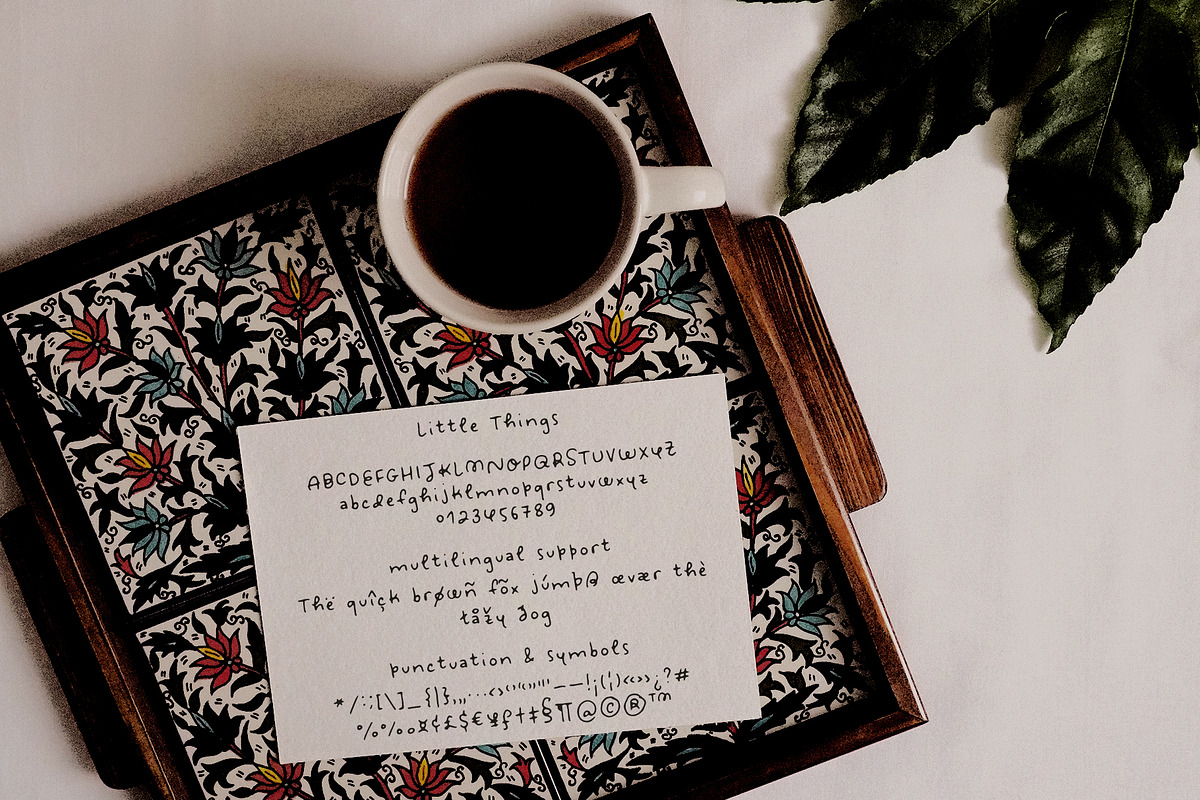 Little Things
ABCDEFGHIJKLMNOPQRSTUVWXYZ
abcdefghijklmnopqrstuvwxyz
0123456789
multilingual support
Thë quîçk brøwñ fõx júmþ@ ævær thè
tåžy dog
punctuation & symbols